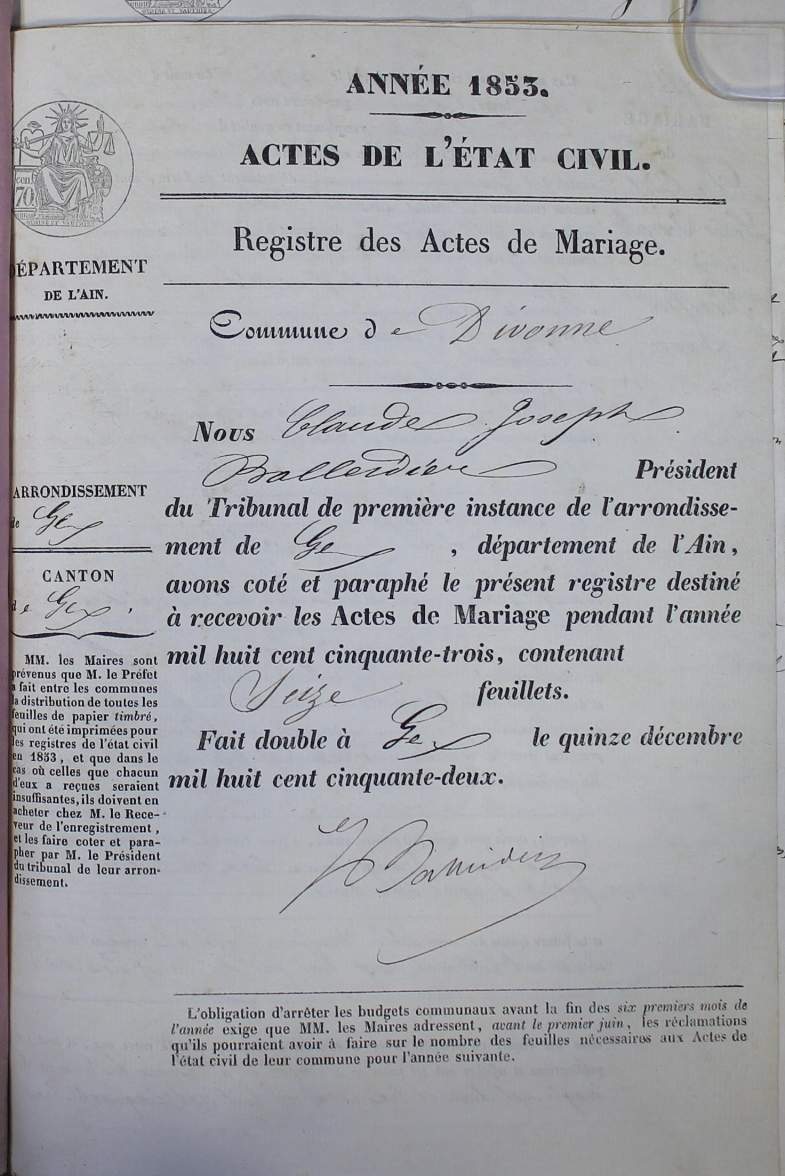 ANNÉE 1853.
ACTES DE L'ÉTAT CIVIL.
Registre des Actes de Mariage.
Commune de Divonne
Nous Claude Joseph
Président
du Tribunal de première instance de l'arrondisse-
ment de Gex, département de l'Ain,
avons coté et paraphé le présent registre destiné
à recevoir les Actes de Mariage pendant l'année
mil huit cent cinquante-trois, contenant
Seize feuillets.
Fait double à Gex le quinze décembre
mil huit cent cinquante-deux.
70
DÉPARTEMENT
DE L'AIN.
ARRONDISSEMENT
de Gex
CANTON
de Gex,
MM. les Maires sont
prévenus que M. le Préfet
a fait entre les communes
la distribution de toutes les
feuilles de papier timbré,
qui ont été imprimées pour
les registres de l'état civil
en 1853, et que dans le
cas où celles que chacun
d'eux a reçues seraient
insuffisantes, ils doivent en
acheter chez M. le Rece-
veur de l'enregistrement,
et les faire coter et para-
pher par M. le Président
du tribunal de leur arron-
dissement.
L'obligation d'arrêter les budgets communaux avant la fin des six premiers mois de
l'année exige que MM. les Maires adressent, avant le premier juin, les réclamations
qu'ils pourraient avoir à faire sur le nombre des feuilles nécessaires aux Actes de
l'état civil de leur commune pour l'année suivante.